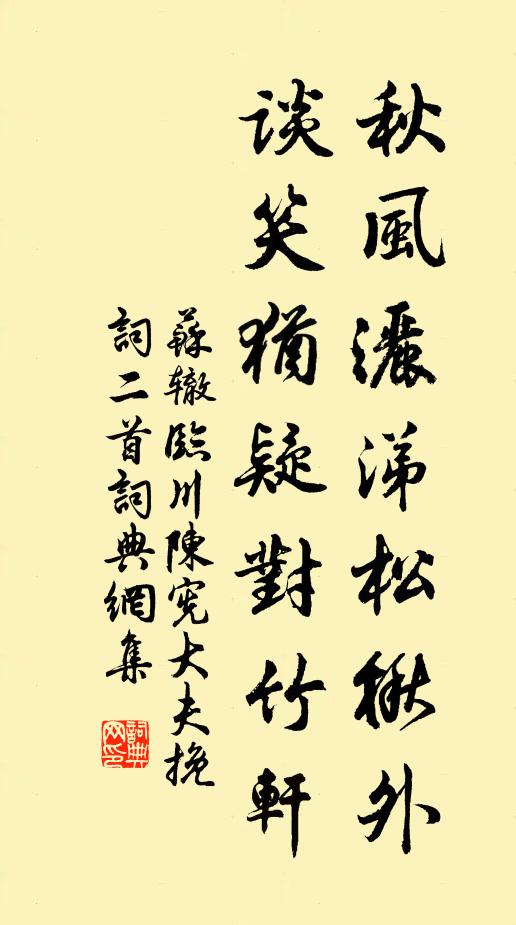 秋風灑涕松楸外
談笑猶疑對竹軒
蘇轍臨川陳憲大夫挽
詞二首詞典網集
詞典網印